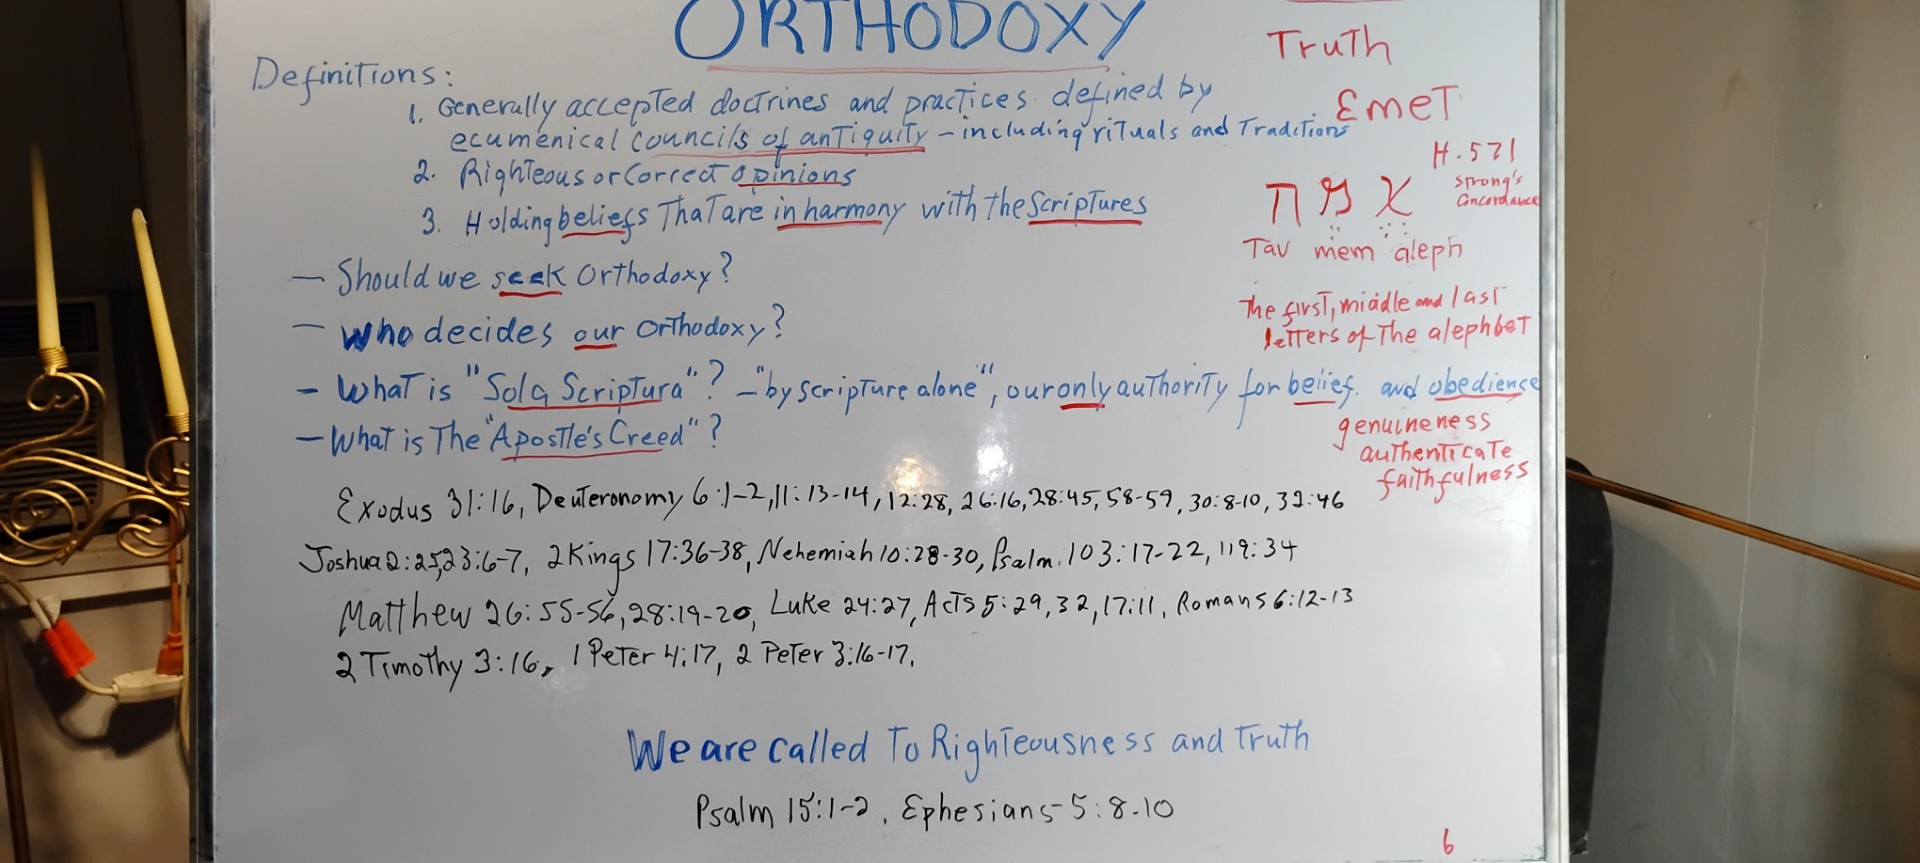 ORTHODOXY
Definitions:
1. Generally accepted doctrines and practices defined by
ecumenical councils of antiquity – including rituals and Traditions
2. Righteous or Correct opinions
3. Holding beliefs That are in harmony with the Scriptures
— Should we seek Orthodoxy?
— Who decides our Orthodoxy?
– What is "Sola Scriptura"? – "by scripture alone", our only authority for belief. and obedience
– What is The "Apostle's Creed"?
Exodus 31:16, Deuteronomy 6:1-2, 11:13-14, 12:28, 26:16, 28:45, 58-59, 30:8-10, 32:46
Joshua 2:25, 23:6-7, 2 Kings 17:36-38, Nehemiah 10:28-30, Psalm. 103:17-22, 119:34
Matthew 26:55-56, 28:19-20, Luke 24:27, Acts 5:29, 32, 17:11, Romans 6:12-13
2 Timothy 3:16, 1 Peter 4:17, 2 Peter 3:16-17.
We are called To Righteousness and Truth
Psalm 15:1-2, Ephesians 5:8-10
Truth
Emet
H.571
Strong's
Concordance
אמת
Tav mem aleph
The first, middle and last
letters of The alephbet
genuineness
authenticate
faithfulness
6